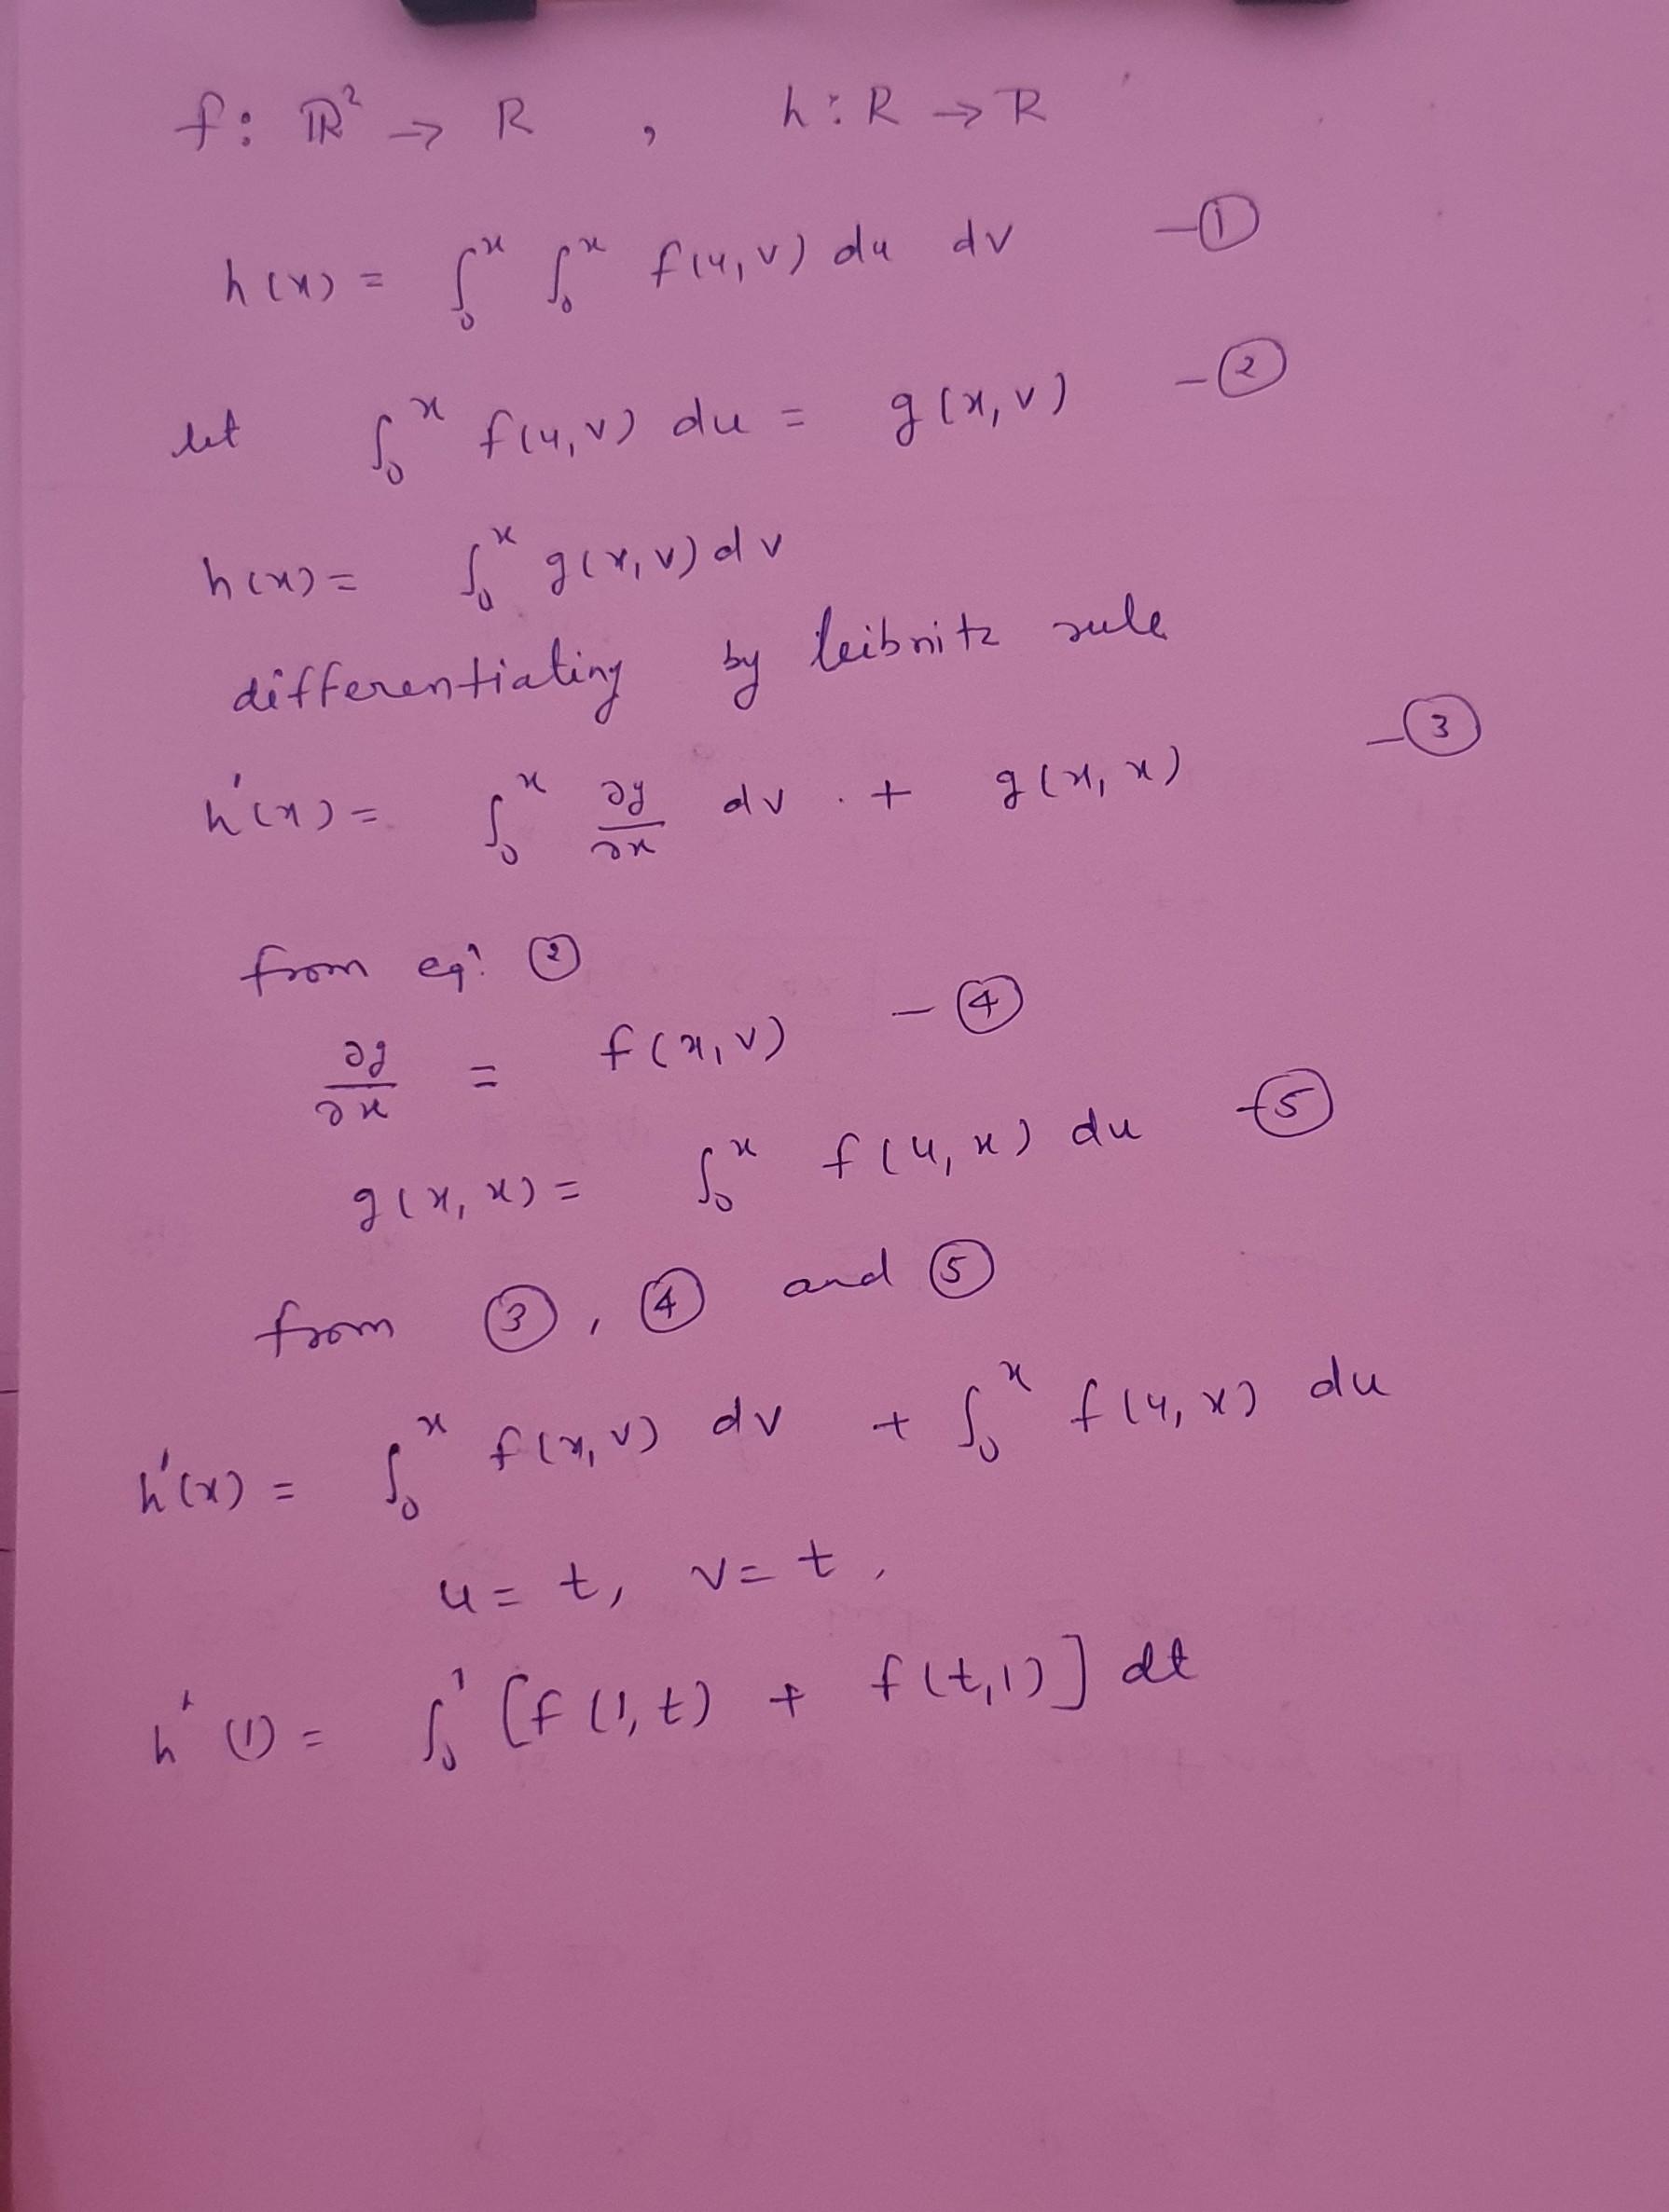 f: ℝ² → R , h: R → R
h(x) = ∫₀ˣ ∫₀ˣ f(u,v) du dv — ①
let ∫₀ˣ f(u,v) du = g(x,v) — ②
h(x) = ∫₀ˣ g(x,v) dv
differentiating by leibnitz rule
h'(x) = ∫₀ˣ ∂g/∂x dv + g(x,x) — ③
from eqⁿ ②
∂g/∂x = f(x,v) — ④
g(x,x) = ∫₀ˣ f(u,x) du — ⑤
from ③, ④ and ⑤
h'(x) = ∫₀ˣ f(x,v) dv + ∫₀ˣ f(u,x) du
u = t, v = t,
h'(1) = ∫₀¹ [f(1,t) + f(t,1)] dt